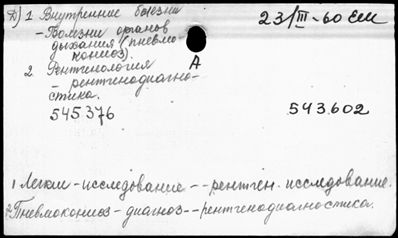 Д) 1 Внутренние болезни
23/III-60 Ем
- Болезни органов
дыхания (пневмо-
кониоз).
2 Рентгенология
А
- рентгенодиагно-
стика.
545.376
543.602
1 Легкии - исследование -- рентген. исследование.
2 Пневмокониоз - диагноз -- рентгенодиагностика.